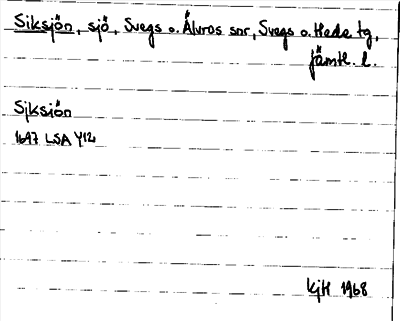 Siksjön, sjö, Svegs o. Älvros snr, Svegs o. Hede tg,
Jämtl. l.
Sjksiön
1647 LSA Y12
KjH 1968